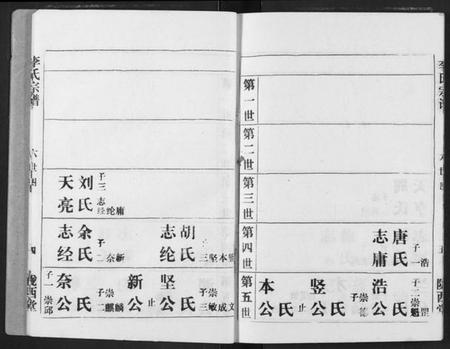 李氏宗谱
第一世
第二世
第三世
第四世
第五世
唐氏 子一 浩
志庸
浩公 氏 子二 崇魁
竖公 氏 子 崇
本公 氏 止
陇西堂
李氏宗谱
六世
四
陇西堂
刘氏 子三 志经纶庸
天亮
胡氏 子三 坚本
志纶
余氏 子二 奈新
志经
坚公 氏 子三 崇敏文成
新公 止
奈公 氏 子二 崇麒麟
子一 崇邱